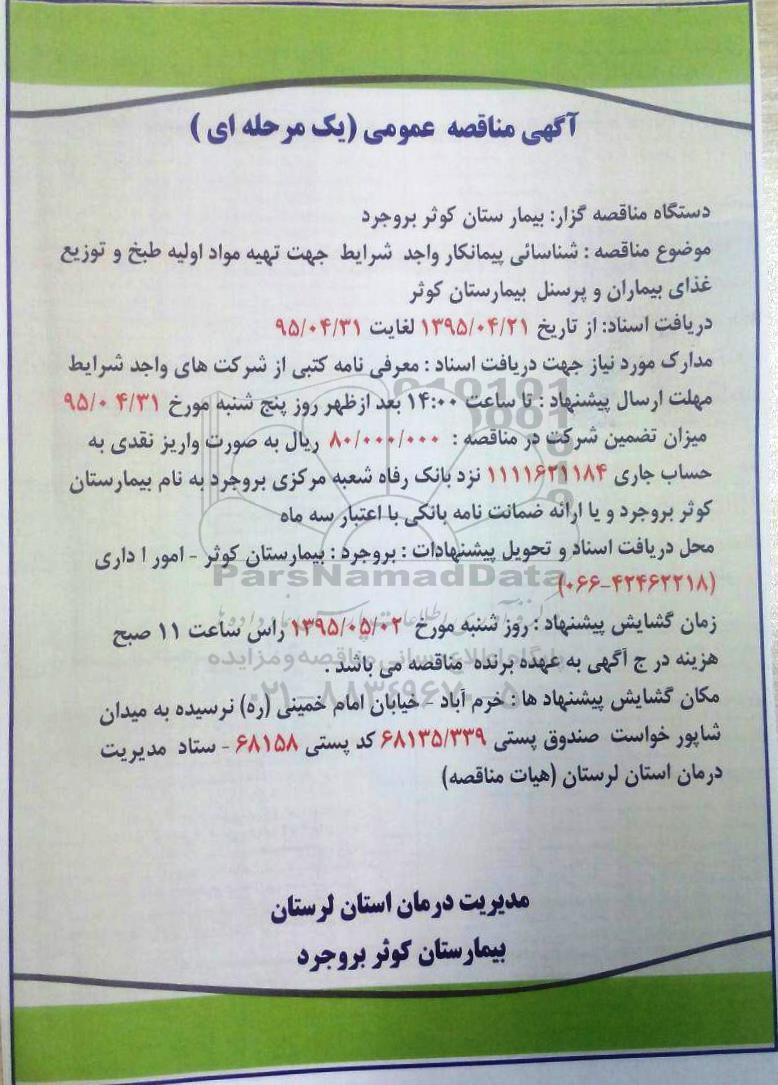 آگهی مناقصه عمومی (یک مرحله ای )
دستگاه مناقصه گزار: بیمار ستان کوثر بروجرد
موضوع مناقصه : شناسائی پیمانکار واجد شرایط جهت تهیه مواد اولیه طبخ و توزیع
غذای بیماران و پرسنل بیمارستان کوثر
دریافت اسناد: از تاریخ ۱۳۹۵/۰۴/۲۱ لغایت ۹۵/۰۴/۳۱
مدارک مورد نیاز جهت دریافت اسناد : معرفی نامه کتبی از شرکت های واجد شرایط
مهلت ارسال پیشنهاد : تا ساعت ۱۴:۰۰ بعد ازظهر روز پنج شنبه مورخ ۹۵/۰ ۴/۳۱
میزان تضمین شرکت در مناقصه : ۸۰/۰۰۰/۰۰۰ ریال به صورت واریز نقدی به
حساب جاری ۱۱۱۱۶۲۱۱۸۴ نزد بانک رفاه شعبه مرکزی بروجرد به نام بیمارستان
کوثر بروجرد و یا ارائه ضمانت نامه بانکی با اعتبار سه ماه
محل دریافت اسناد و تحویل پیشنهادات : بروجرد : بیمارستان کوثر - امور ا داری
(۰۶۶-۴۲۴۶۲۲۱۸)
ParsNamadData
زمان گشایش پیشنهاد : روز شنبه مورخ ۱۳۹۵/۰۵/۰۲ راس ساعت ۱۱ صبح
هزینه در ج آگهی به عهده برنده مناقصه می باشد .
پایگاه اطلاع رسانی مناقصه و مزایده
۰۲۱-۸۸۳۴۹۶۷۰-۵
مکان گشایش پیشنهاد ها : خرم آباد - خیابان امام خمینی (ره) نرسیده به میدان
شاپور خواست صندوق پستی ۶۸۱۳۵/۳۳۹ کد پستی ۶۸۱۵۸ - ستاد مدیریت
درمان استان لرستان (هیات مناقصه)
مدیریت درمان استان لرستان
بیمارستان کوثر بروجرد